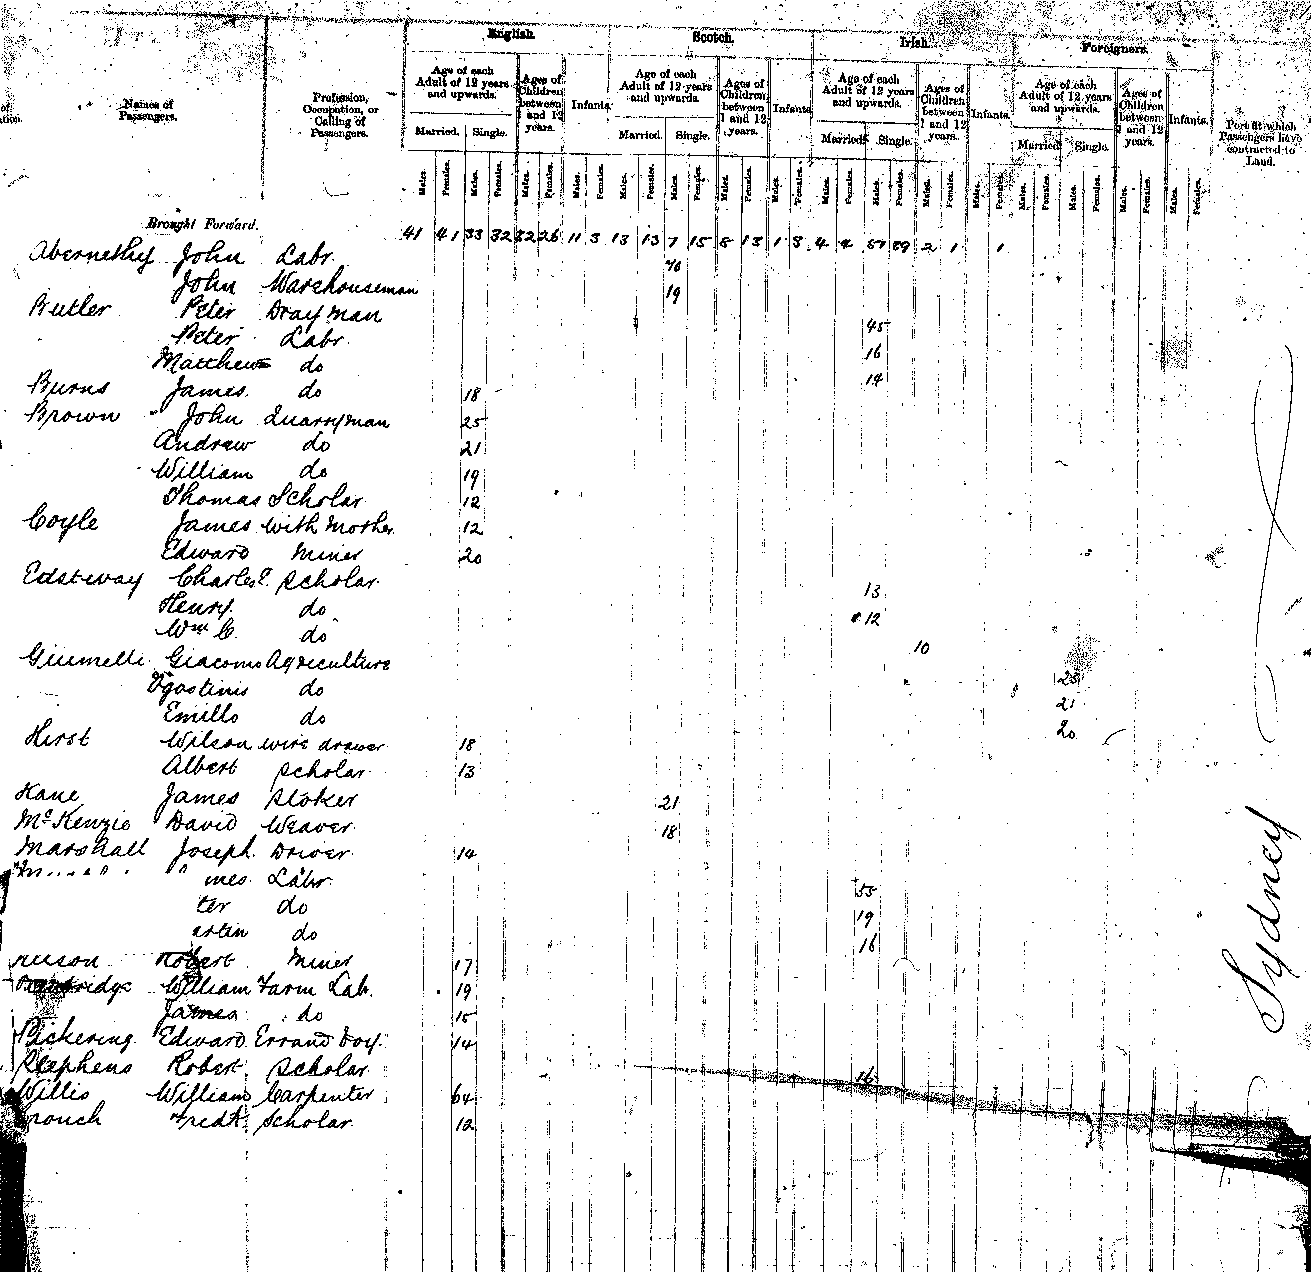 English. Scotch. Irish. Foreigners.
Names of Passengers. Profession, Occupation, or Calling of Passengers. Age of each Adult of 12 years and upwards. Ages of Children between 1 and 12 years. Infants. Age of each Adult of 12 years and upwards. Ages of Children between 1 and 12 years. Infants. Age of each Adult of 12 years and upwards. Ages of Children between 1 and 12 years. Infants. Age of each Adult of 12 years and upwards. Ages of Children between 1 and 12 years. Infants. Port at which Passengers have contracted to Land.
Married. Single. Married. Single. Married. Single. Married. Single.
Males. Females. Males. Females. Males. Females. Males. Females. Males. Females. Males. Females. Males. Females. Males. Females. Males. Females. Males. Females. Males. Females. Males. Females. Males. Females. Males. Females. Males. Females. Males. Females.
Brought Forward. 41 41 33 32 22 26 11 3 13 13 7 15 8 13 1 3 4 4 51 89 2 1 1
Abernethy John Labr.
John Warehouseman 19
Butler Peter Drayman 45
Peter Labr. 16
Matthew do 14
Burns James do 18
Brown John Quarryman 25
Andrew do 21
William do 19
Thomas Scholar 12
Coyle James with Mother 12
Edward Miner 20
Edstway Charles E. Scholar 13
Henry do 12
Wm C. do 10
Giumelli Giacomo Agriculture 25
do 21
Emillo do 20
Hirst Wilson wire drawer 18
Albert scholar 13
Kane James Stoker 21
McKenzie David Weaver 18
Marshall Joseph Driver 14
mes Labr. 55
ter do 19
artin do 16
Robert Miner 17
William Farm Lab. 19
James do 15
Pickering Edward Errand Boy 14
Stephens Robert Scholar 16
Willis William Carpenter 64
rouch Fredk. Scholar 12
Sydney